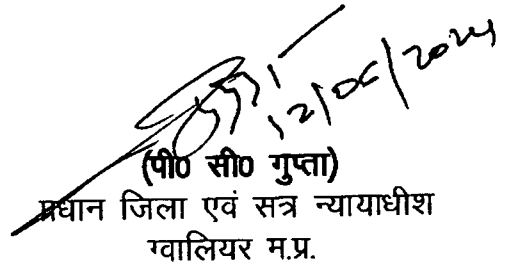 12/06/2024
(पी0 सी0 गुप्ता)
प्रधान जिला एवं सत्र न्यायाधीश
ग्वालियर म.प्र.